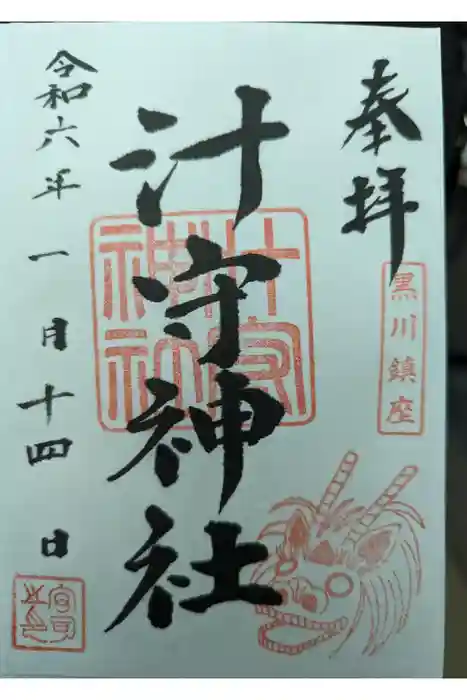 奉拝
黒川鎮座
汁守神社
汁守神社
令和六年一月十四日
宮司之印